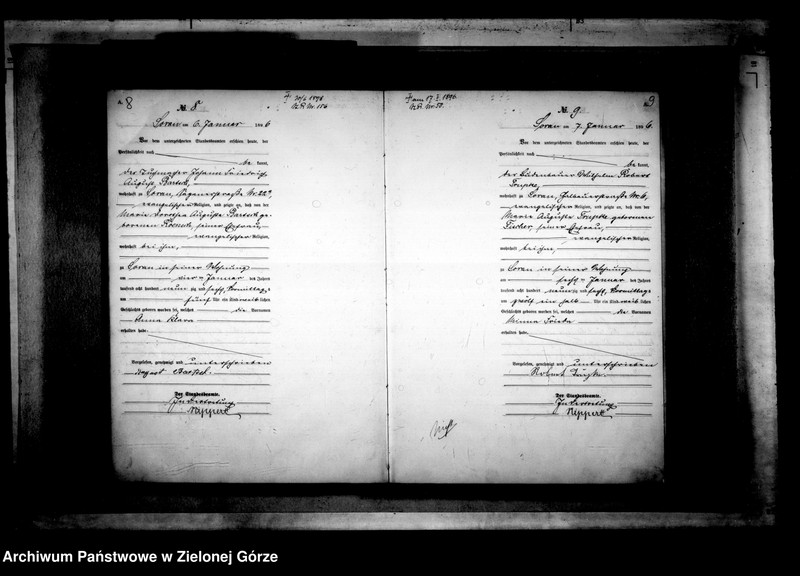 A. 8
№ 8
† 30/6 1896
St. R. Nr. 154
Sorau am 6. Januar 1896
Vor dem unterzeichneten Standesbeamten erschien heute, der
Persönlichkeit nach
be kannt,
der Tuchmacher Johann Friedrich
August Bartsch,
wohnhaft in Sorau,
evangelischer Religion, und zeigte an, daß von der
Marie Dorothe Auguste Bartsch ge-
bornen seiner Ehefrau,
evangelischer Religion,
wohnhaft bei ihm,
zu Sorau in seiner Wohnung
am vier ten Januar des Jahres
tausend acht hundert neun zig und sechs, Vormittags
um fünf Uhr ein Kind weib lichen
Geschlechts geboren worden sei, welches die Vornamen
Anna Klara
erhalten habe.
Vorgelesen, genehmigt und unterschrieben
August Bartsch.
Der Standesbeamte.
In Vertretung
9
№ 9
† am 17. 1896.
St. R. Nr.
Sorau am 7. Januar 1896.
Vor dem unterzeichneten Standesbeamten erschien heute, der
Persönlichkeit nach
be kannt,
der Wilhelm Robert
wohnhaft in Sorau,
evangelischer Religion, und zeigte an, daß von der
Marie Auguste gebornen
Fischer, seiner Ehefrau,
evangelischer Religion,
wohnhaft bei ihm,
zu Sorau in seiner Wohnung
am sechs ten Januar des Jahres
tausend acht hundert neun zig und sechs, Vormittags
um zwölf ein halb Uhr ein Kind weib lichen
Geschlechts geboren worden sei, welches die Vornamen
Minna Frieda
erhalten habe.
Vorgelesen, genehmigt und unterschrieben
Robert
Der Standesbeamte.
In Vertretung
Archiwum Państwowe w Zielonej Górze